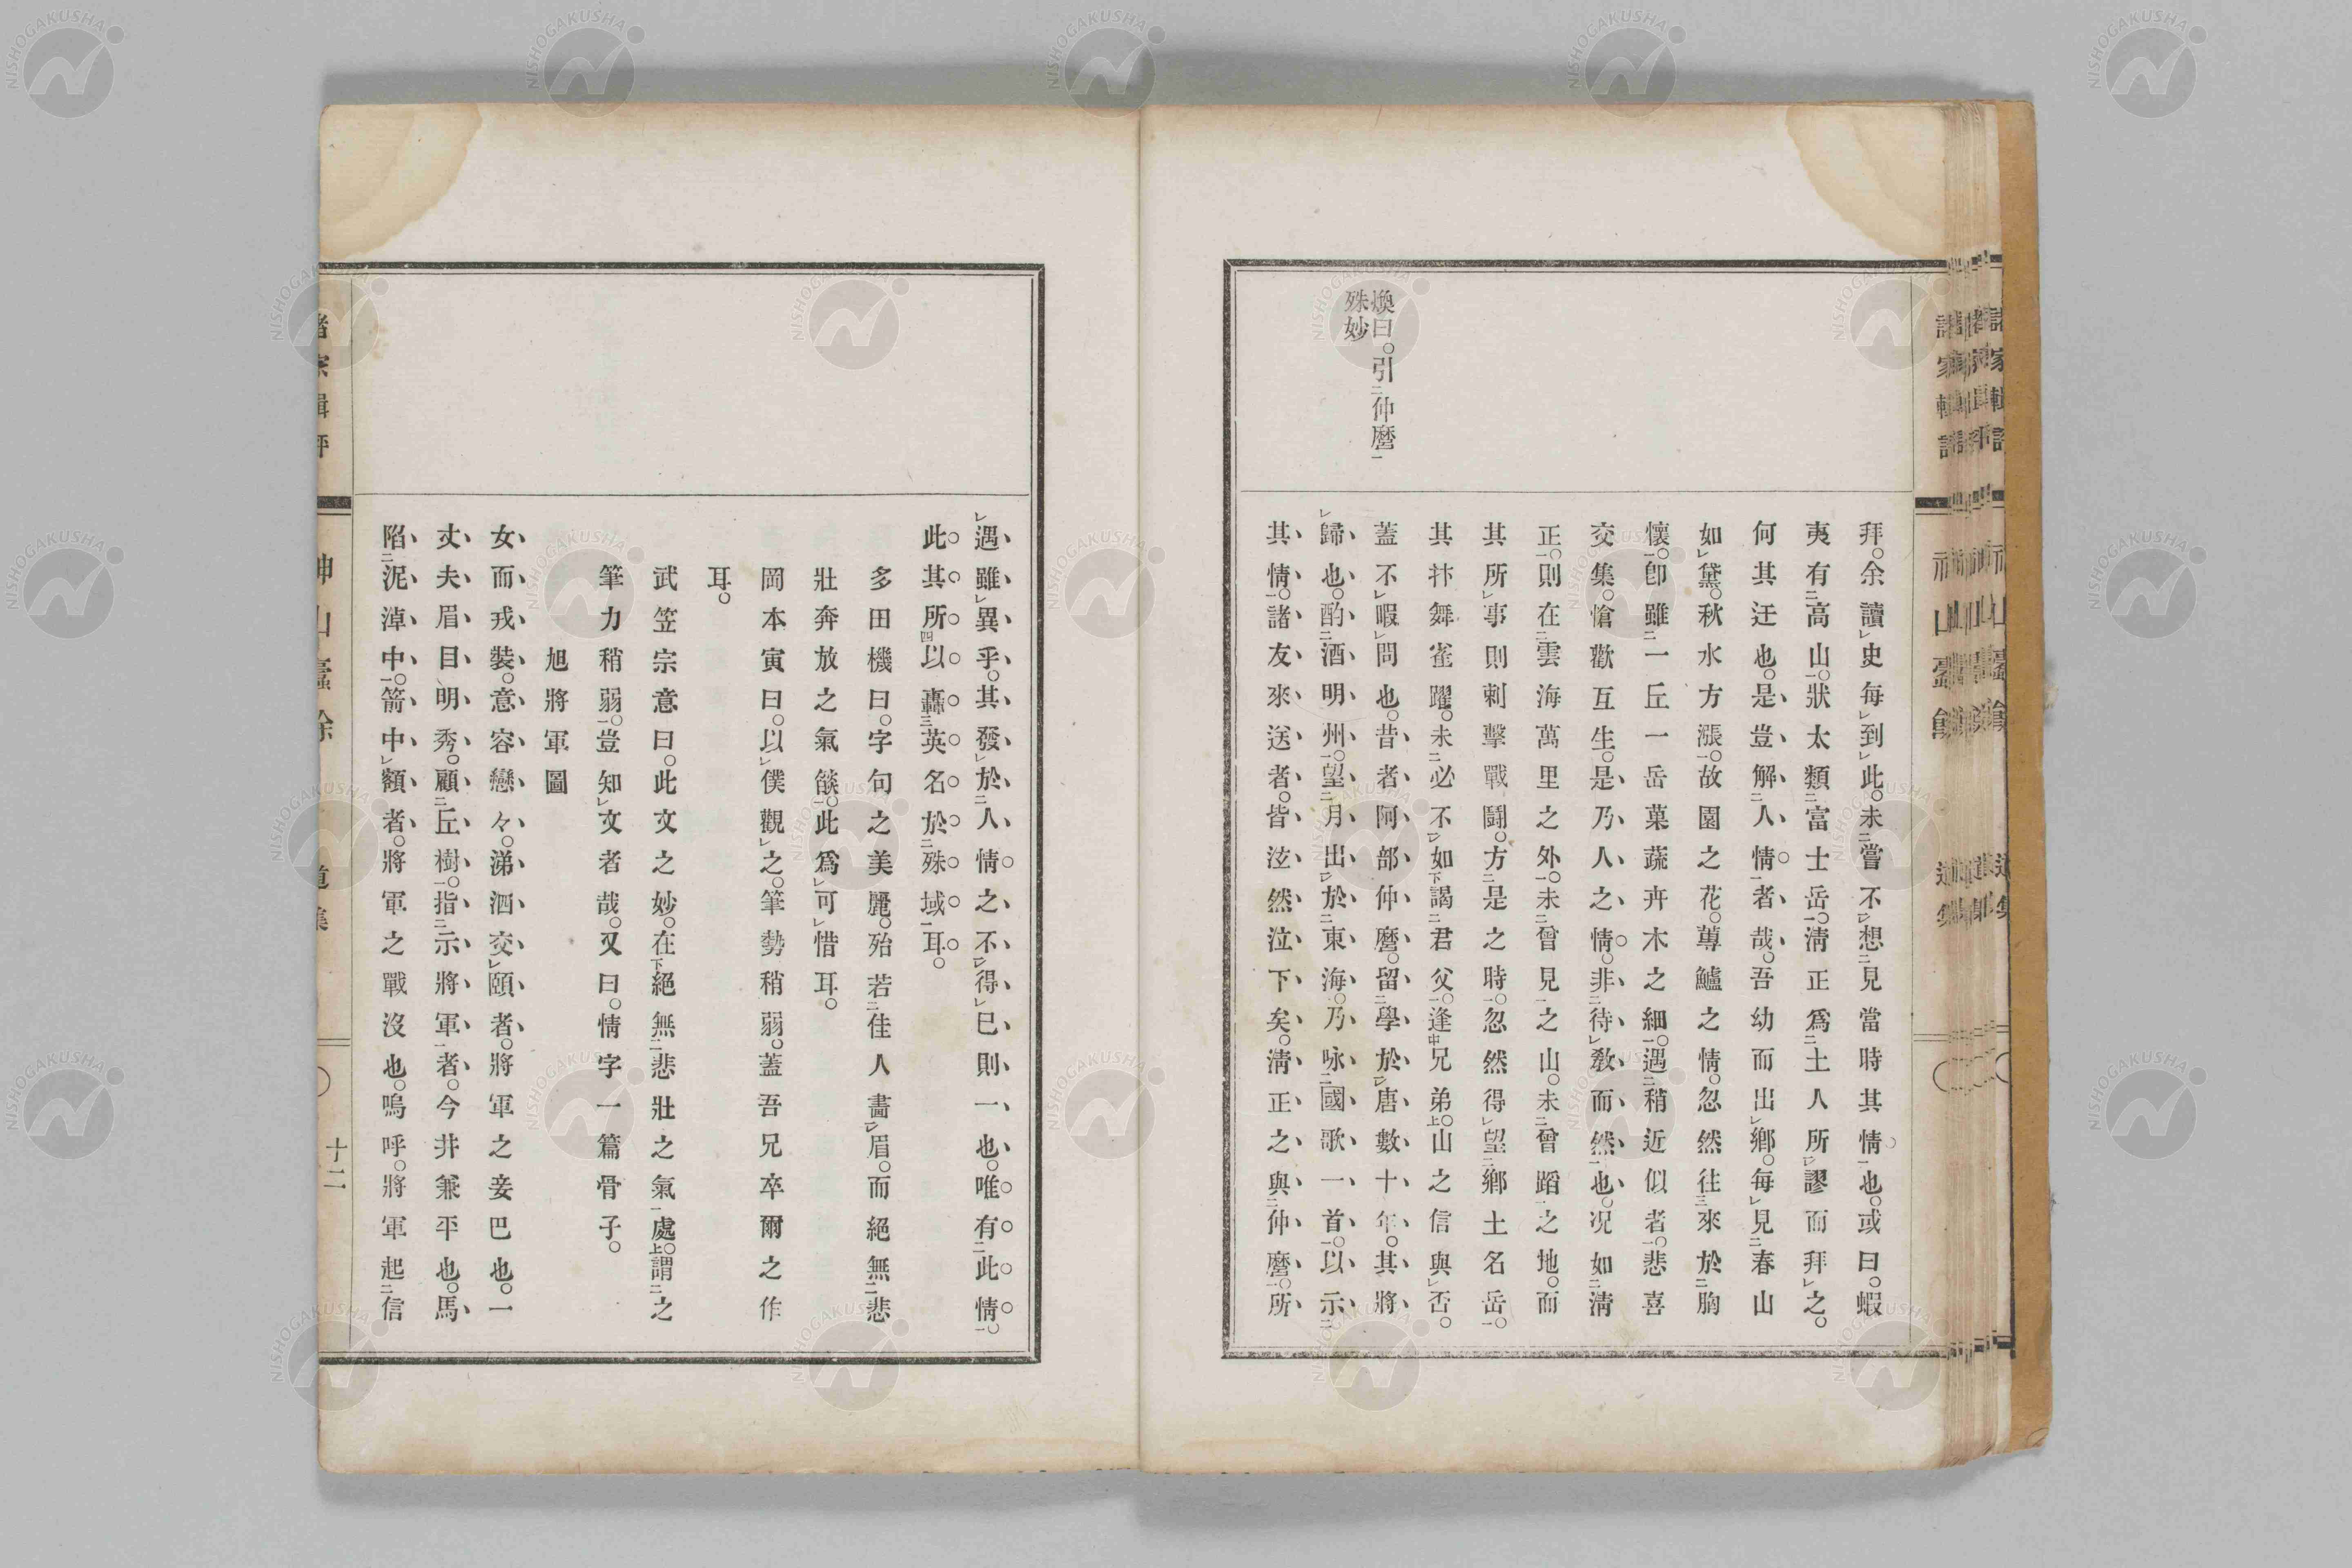 煥曰。引仲麿
殊妙
拜。余讀史每到此。未嘗不想見當時其情也。或曰。蝦
夷有高山。狀太類富士岳。淸正爲土人所謬而拜之。
何其迂也。是豈解人情者哉。吾幼而出鄕。每見春山
如黛。秋水方漲。故園之花。蓴鱸之情。忽然往來於胸
懷。卽雖一丘一岳菓蔬卉木之細。遇稍近似者。悲喜
交集。愴歡互生。是乃人之情。非待敎而然也。况如淸
正。則在雲海萬里之外。未曾見之山。未曾蹈之地。而
其所事則刺擊戰鬪。方是之時。忽然得望鄕土名岳。
其抃舞雀躍。未必不如謁君父。逢兄弟。山之信與否。
蓋不暇問也。昔者阿部仲麿。留學於唐數十年。其將
歸也。酌酒明州。望月出於東海。乃咏國歌一首。以示
其情。諸友來送者。皆泫然泣下矣。淸正之與仲麿。所
遇雖異乎。其發於人情之不得已則一也。唯有此情。
此其所以轟英名於殊域耳。
多田機曰。字句之美麗。殆若佳人畵眉。而絕無悲
壯奔放之氣燄。此爲可惜耳。
岡本寅曰。以僕觀之。筆勢稍弱。蓋吾兄卒爾之作
耳。
武笠宗意曰。此文之妙。在絕無悲壯之氣處。謂之
筆力稍弱。豈知文者哉。又曰。情字一篇骨子。
旭將軍圖
女而戎裝。意容戀々。涕泗交頤者。將軍之妾巴也。一
丈夫眉目明秀。顧丘樹。指示將軍者。今井兼平也。馬
陷泥淖中。箭中額者。將軍之戰沒也。嗚呼。將軍起信
十二